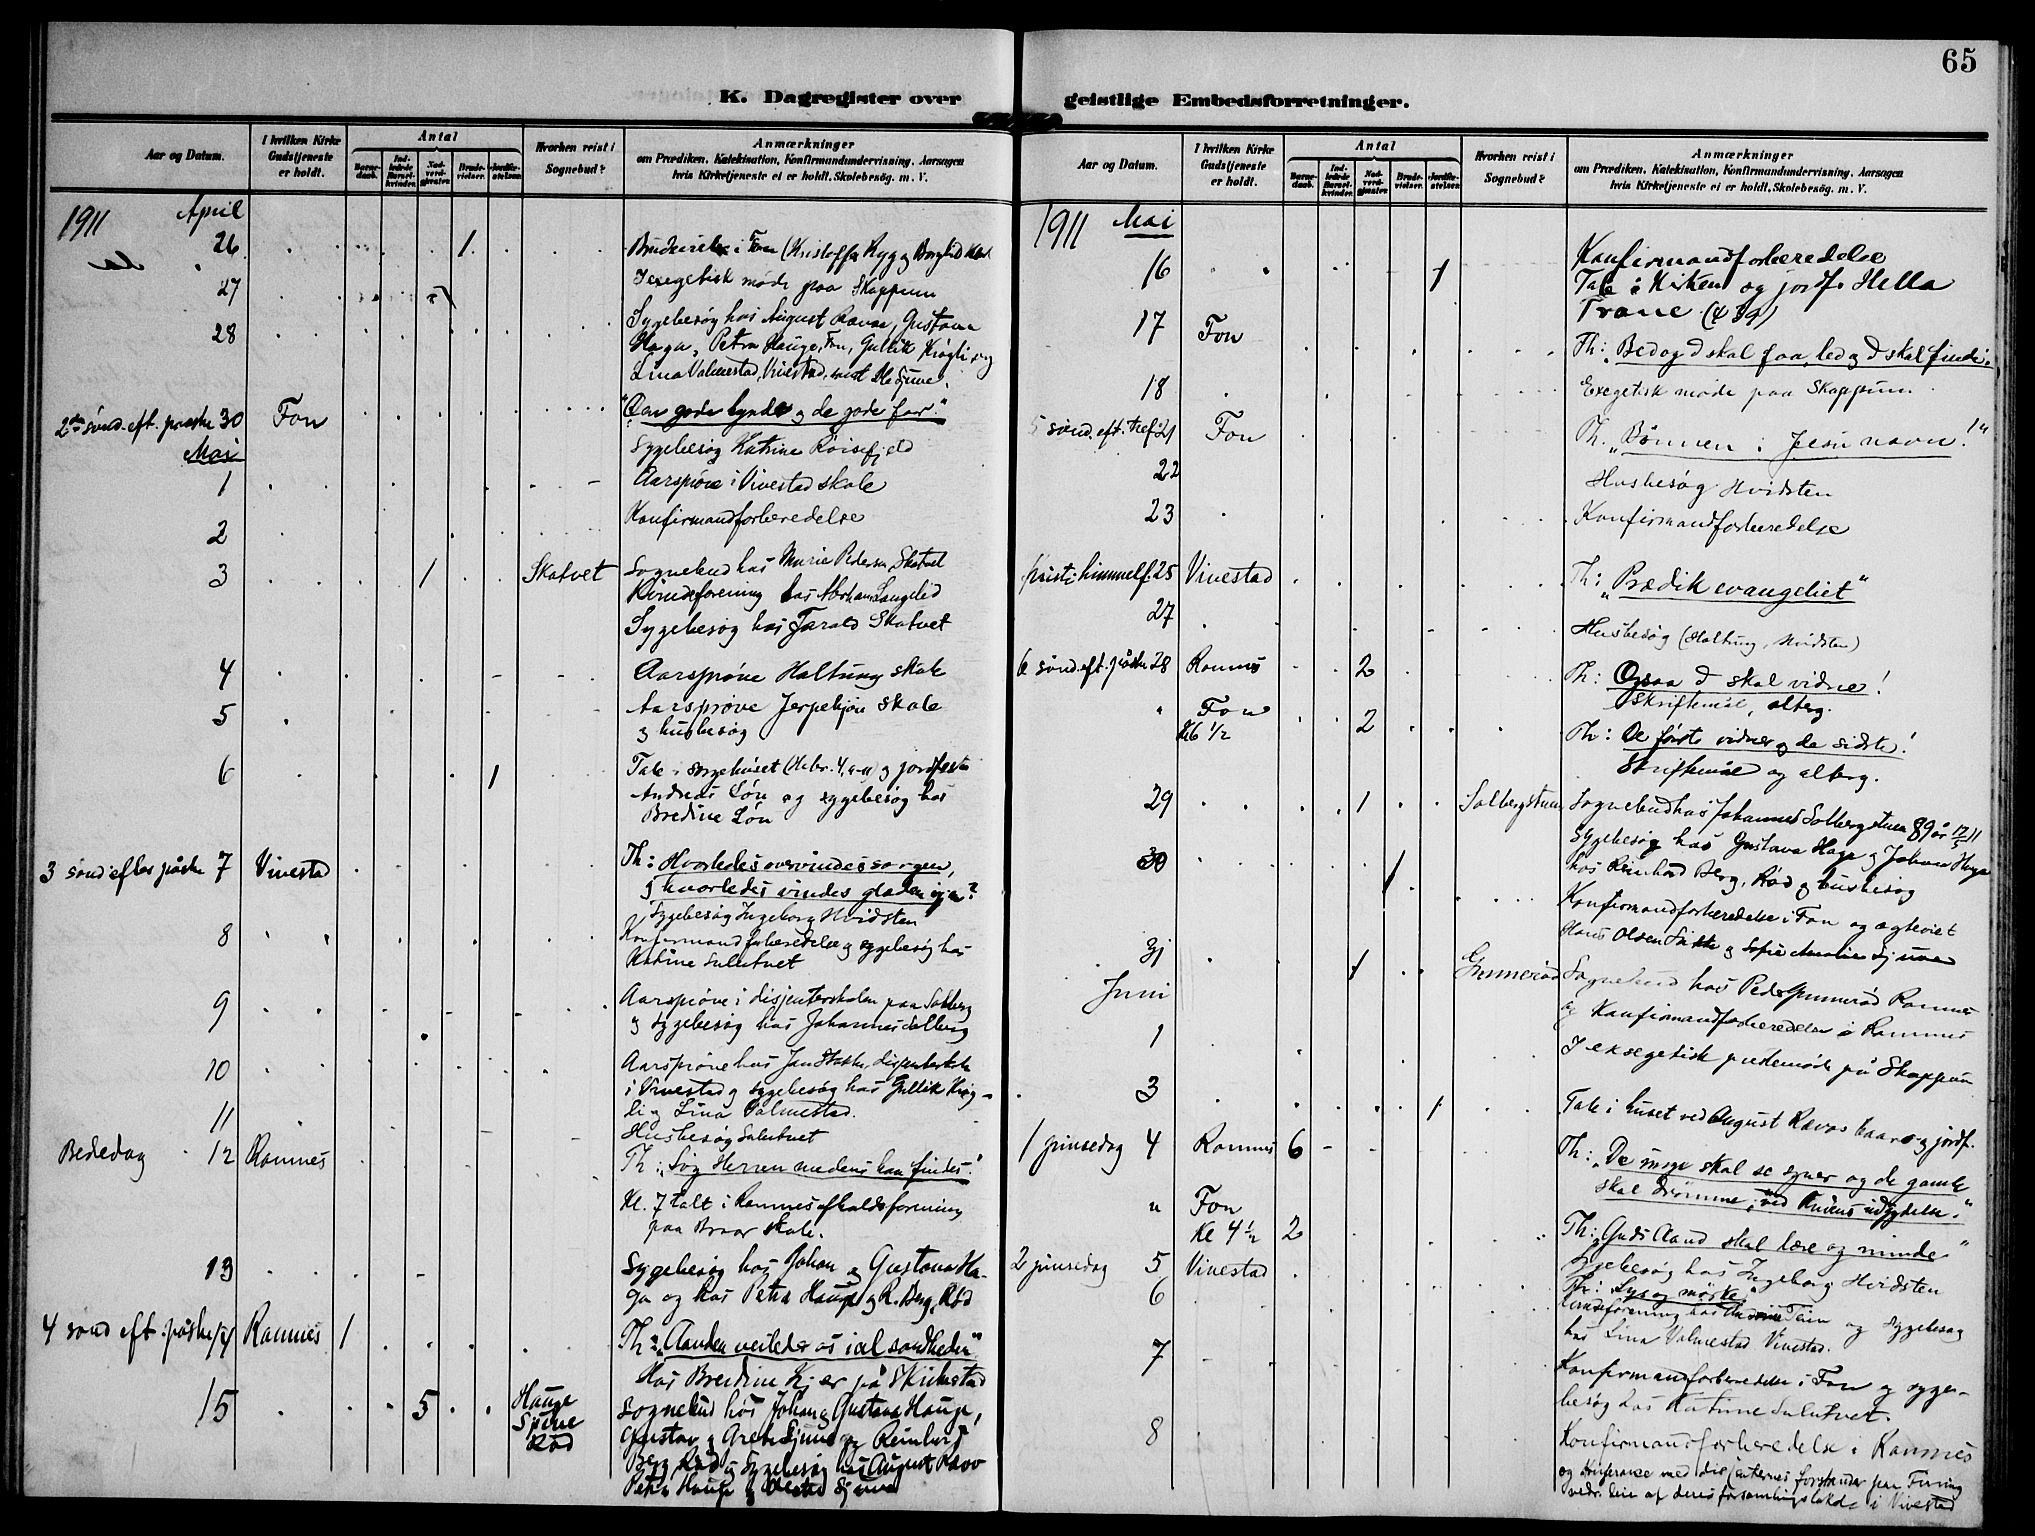 65
K. Dagregister over geistlige Embedsforretninger.
Aar og Datum.
I hvilken Kirke Gudstjeneste er holdt.
Antal
Barnedaab.
Indledede Barselkvinder.
Nadverdgjæster.
Brudevielser.
Jordfæstelser.
Hvorhen reist i Sognebud?
Anmærkninger
om Prædiken, Katekisation, Konfirmandundervisning. Aarsagen
hvis Kirketjeneste ei er holdt. Skolebesøg. m. V.
1911 April
26 1 Brudevielse i Fon (Kristoffer Ryg og
27 I exegetisk møde paa Skoppum
28 Sygebesøg hos August Ravaas, Gustava
Haga, Petra Hauge, Fon, Gullik Krøgli og
Lina Valmestad, Vivestad, samt
2den sønd. eft. paaske 30 Fon "Den gode hyrde og de gode faar."
Mai Sygebesøg Katrine
1 Aarsprøve i Vivestad skole
2 Konfirmandforberedelse
3 1 Skatvet Sognebud hos Marie Pedersen, Skatvet
Kvindeforening hos Abraham Langelid
Sygebesøg hos Tarald Skatvet
4 Aarsprøve Haltung skole
5 Aarsprøve Jerpekjøn skole
og husbesøg
6 1 Tale i sørgehuset (Hebr. 4, 9-11) og jordfestet
Andreas Løn og sygebesøg hos
Bredine Løn
3 sønd efter påske 7 Vivestad Th: Hvorledes overvindes sorgen,
hvorledes vindes glæden igjen?
Sygebesøg Ingeborg Hvidsten
8 Konfirmandforberedelse og sygebesøg hos
Katrine Sulutvet
9 Aarsprøve i disjenterskolen paa Solberg
og sygebesøg hos Johannes Solberg
10 Aarsprøve hos Jan disjenterskole
i Vivestad og sygebesøg hos Gullik Krøg-
li og Lina Valmestad.
11 Husbesøg Sulutvet
Bededag 12 Ramnes Th: "Søg Herren medens han findes."
Kl. 7 talt i Ramnes afholdsforening
paa Braar skole.
13 Sygebesøg hos Johan og Gustava Ha-
ga og hos Petra Hauge og R. Berg, Rød
4 sønd eft. påske 14 Ramnes 1 Th: "Aanden veileder os i al sandheden"
Hos Bredine Kjær på Skirkestad
15 5 Hauge Sjune Rød Sognebud hos Johan og Gustava Hauge,
Gustav og Grete Sjune og Reinhard
Berg Rød og Sygebesøg hos August Ravo
Petra Hauge og Sjune
Aar og Datum.
I hvilken Kirke Gudstjeneste er holdt.
Antal
Barnedaab.
Indledede Barselkvinder.
Nadverdgjæster.
Brudevielser.
Jordfæstelser.
Hvorhen reist i Sognebud?
Anmærkninger
om Prædiken, Katekisation, Konfirmandundervisning. Aarsagen
hvis Kirketjeneste ei er holdt. Skolebesøg. m. V.
1911 Mai
16 1 Konfirmandforberedelse
Tale i Kirken og jordf. Hella
Trane
17 Fon Th: "Bed og I skal faa, led og I skal finde."
18 Exegetisk møde paa Skoppum
5 sønd. eft. 21 Fon Th. "Bønnen i Jesu navn!"
22 Husbesøg Hvidsten
23 Konfirmandforberedelse
Kristi himmelf. 25 Vivestad Th: "Prædik evangeliet"
27 Husbesøg (Haltung, Hvidsten)
6 sønd. eft. påske 28 Ramnes 2 Th: Ogsaa I skal vidne!
Skriftemål, alterg.
" Fon Kl 6 1/2 2 Th: De første vidner og de sidste!
Skriftemål og alterg.
29 1 Solbergstuen Sognebud hos Johannes Solbergstuen 89 år
Sygebesøg hos Gustava Haga og Johan Haga
30 1 hos Reinhard Berg, Rød og husbesøg
Konfirmandforberedelse i Fon og ægteviet
Hans Olsen og Sofie Sjune
31 1 Gunnerød Sognebud hos Peder Gunnerød Ramnes
og Konfirmandforberedelse i Ramnes
Juni
1 I eksegetisk præstemøde på Skoppum
3 1 Tale i huset ved August Ravos baare og jordf.
1 pinsedag 4 Ramnes 6 Th: "De unge skal se syner og de gamle
skal drømme, ved Aandens udgydelse."
" Fon Kl 4 1/2 2 Th: "Guds Aand skal lære og minde"
Sygebesøg hos Ingeborg Hvidsten
2 pinsedag 5 Vivestad Th: "Lys og mørke"
6 Kvindeforening hos Teien og sygebesøg
hos Lina Valmestad Vivestad.
7 Konfirmandforberedelse i Fon og syge-
besøg hos Katrine Sulutvet.
8 Konfirmandforberedelse i Ramnes
og konferanse med disjenternes forstander
vedr. leie af deres forsamlingslokale i Vivestad